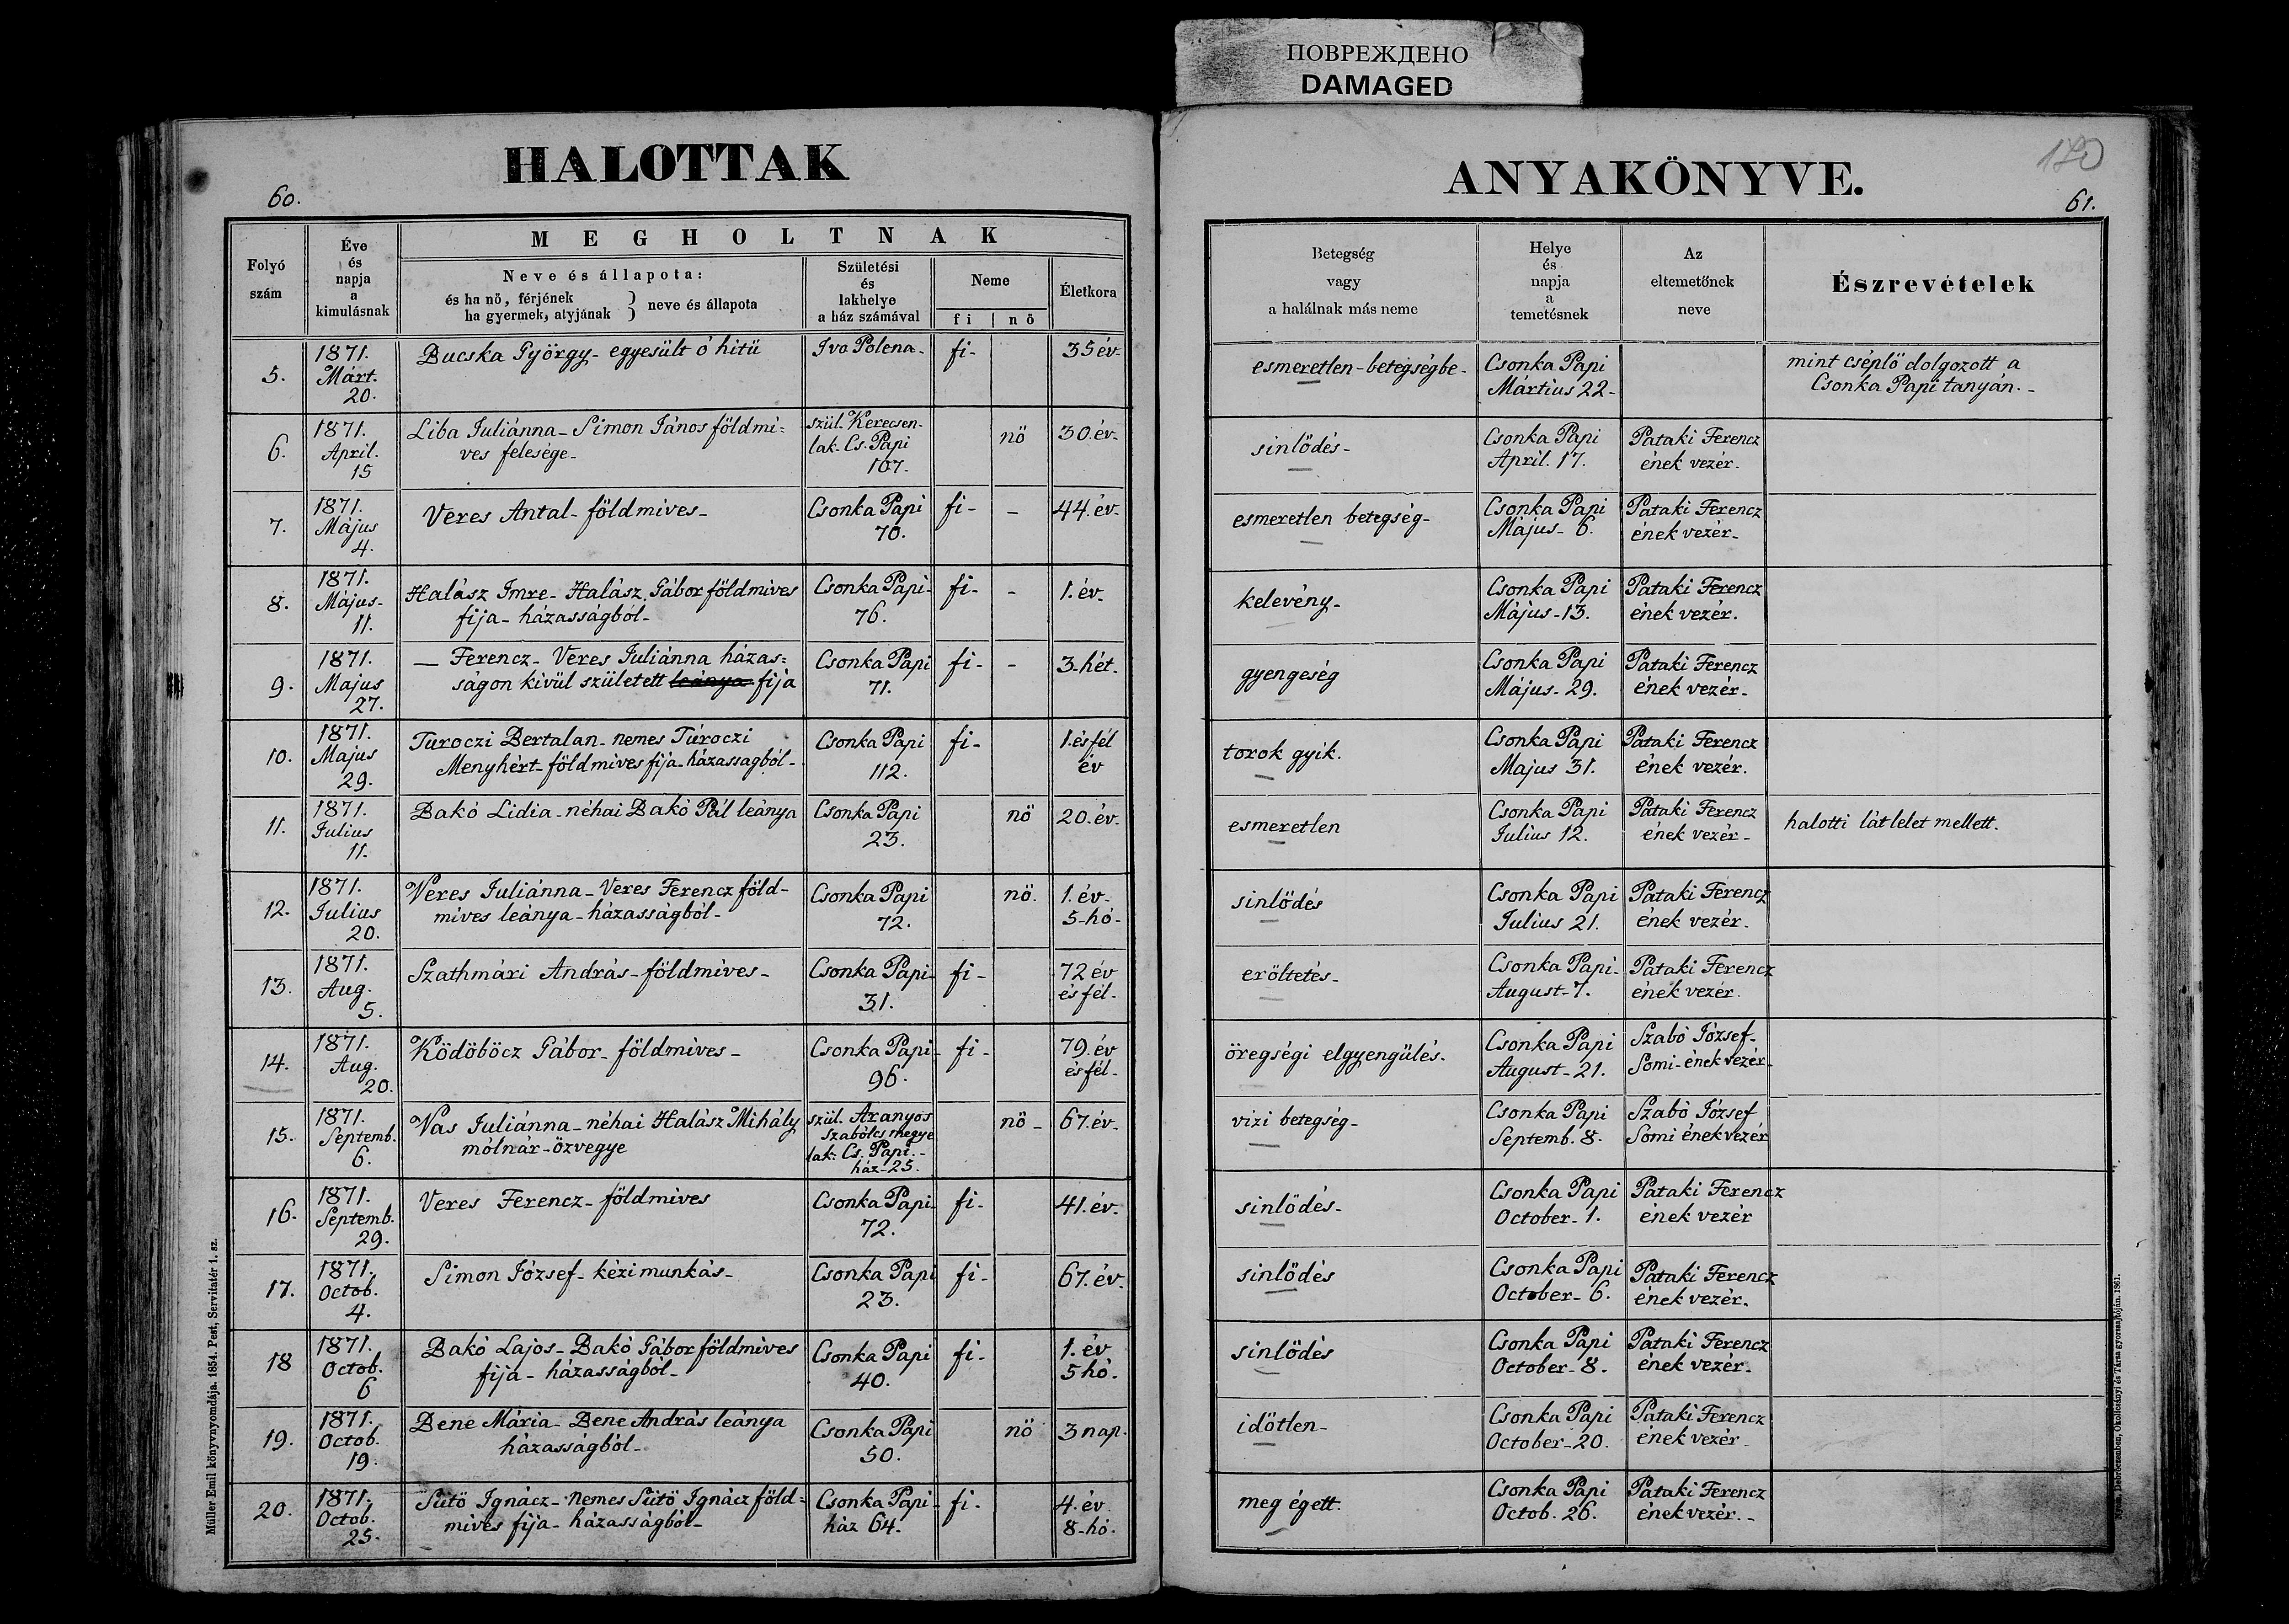 ПОВРЕЖДЕНО
DAMAGED
HALOTTAK
60.
MEGHOLTNAK
Folyó
szám
Éve
és
napja
a
kimulásnak
Neve és állapota:
és ha nő, férjének
ha gyermek, atyjának } neve és állapota
Születési
és
lakhelye
a ház számával
Neme
fi | nö
Életkora
5.
1871.
Márt.
20.
Bucska György- egyesült ó hitü
Iva Polena-
fi-
35 év-
6.
1871.
April.
15
Liba Juliánna- Simon János földmi=
ves felesége-
szül. Kerecsen-
lak- Cs. Papi
107-
nö
30. év-
7.
1871.
Május
4.
Veres Antal- földmives-
Csonka Papi
70.
fi-
-
44. év-
8.
1871.
Május-
11.
Halász Imre- Halász Gábor földmives
fija- házasságból-
Csonka Papi-
76.
fi-
-
1. év-
9.
1871.
Majus
27.
— Ferencz- Veres Juliánna házas=
ságon kivül született leánya fija
Csonka Papi
71.
fi-
-
3. hét.
10.
1871.
Majus
29.
Turoczi Bertalan- nemes Túroczi
Menyhért- földmives fija- házasságból-
Csonka Papi
112.
fi-
1. és fél
év
11.
1871.
Julius
11.
Bakó Lidia- néhai Bakó Pál leánya
Csonka Papi
23.
nö
20. év-
12.
1871.
Julius
20.
Veres Juliánna- Veres Ferencz föld-
mives leánya- házasságból-
Csonka Papi
72.
nö.
1. év-
5-hó-
13.
1871.
Aug.
5.
Szathmári András- földmives-
Csonka Papi-
31.
fi-
72 év
és fél-
14.
1871.
Aug.
20.
Ködöböcz Gábor- földmives-
Csonka Papi-
96.
fi-
79. év
és fél-
15.
1871.
Septemb.
6.
Vas Juliánna- néhai Halász Mihály
mólnár- özvegye
szül. Aranyos
Szabólcs megye
lak: Cs. Papi.-
ház- 25.
nö-
67. év-
16.
1871.
Septemb.
29.
Veres Ferencz- földmives
Csonka Papi-
72.
fi-
41. év-
17.
1871.
Octob.
4.
Simon József- kézi munkás-
Csonka Papi
23.
fi-
67. év-
18
1871.
Octob.
6
Bakó Lajos- Bakó Gábor földmives
fija- házasságból-
Csonka Papi
40.
fi-
1. év
5 hó.
19.
1871.
Octob.
19.
Bene Mária- Bene András leánya
házasságból-
Csonka Papi
50.
nö
3 nap.
20.
1871.
Octob.
25.
Sütö Ignácz- nemes Sütö Ignácz föld=
mives fija- házasságból-
Csonka Papi-
ház 64.
fi-
4. év
8-hó.
Müller Emil könyvnyomdája. 1854. Pest, Servitatér 1. sz.
ANYAKÖNYVE.
61.
Betegség
vagy
a halálnak más neme
Helye
és
napja
a
temetésnek
Az
eltemetőnek
neve
Észrevételek
esmeretlen-betegségbe-
Csonka Papi
Mártius 22-
mint cséplö dolgozott a
Csonka Papi tanyán.-
sinlődés-
Csonka Papi
April. 17.
Pataki Ferencz
ének vezér.
esmeretlen betegség-
Csonka Papi
Május- 6.
Pataki Ferencz
ének vezér-
kelevény-
Csonka Papi
Május-13.
Pataki Ferencz
ének vezér.
gyengeség
Csonka Papi
Május- 29.
Pataki Ferencz
ének vezér-
torok gyik.
Csonka Papi
Majus 31.
Pataki Ferencz
ének vezér.
esmeretlen
Csonka Papi
Julius 12.
Pataki Ferencz
ének vezér-
halotti látlelet mellett.
sinlödés
Csonka Papi
Julius 21.
Pataki Ferencz
ének vezér.
eröltetés-
Csonka Papi-
August- 7.
Pataki Ferencz
ének vezér.
öregségi elgyengülés-
Csonka Papi
August- 21.
Szabó József-
Somi- ének vezér-
vizi betegség-
Csonka Papi
Septemb. 8.
Szabó József
Somi ének vezér
sinlödés-
Csonka Papi
October- 1.
Pataki Ferencz
ének vezér
sinlödés
Csonka Papi
October- 6.
Pataki Ferencz
ének vezér.
sinlödés
Csonka Papi
October- 8.
Pataki Ferencz
ének vezér-
idötlen-
Csonka Papi
October- 20.
Pataki Ferencz
ének vezér
meg égett.
Csonka Papi
Octob. 26.
Pataki Ferencz
ének vezér.-